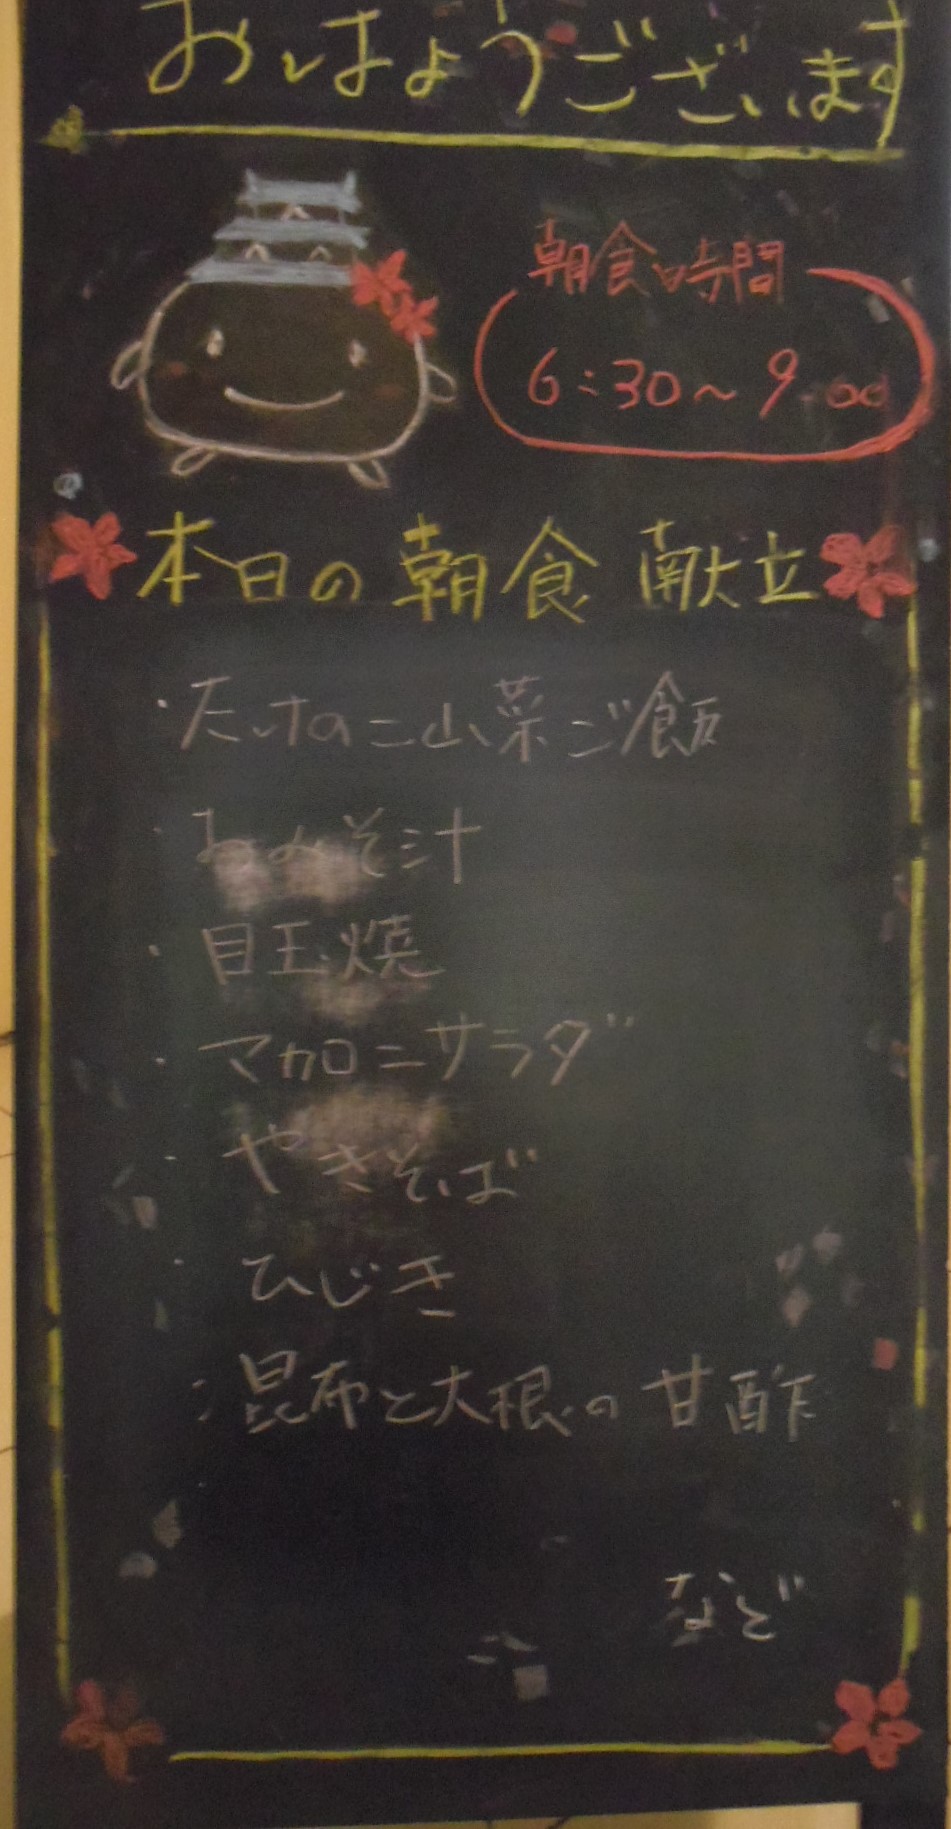 おはようございます
朝食時間
6:30～9:00
本日の朝食献立
・たけのこ山菜ご飯
・おみそ汁
・目玉焼
・マカロニサラダ
・やきそば
・ひじき
・昆布と大根の甘酢
など